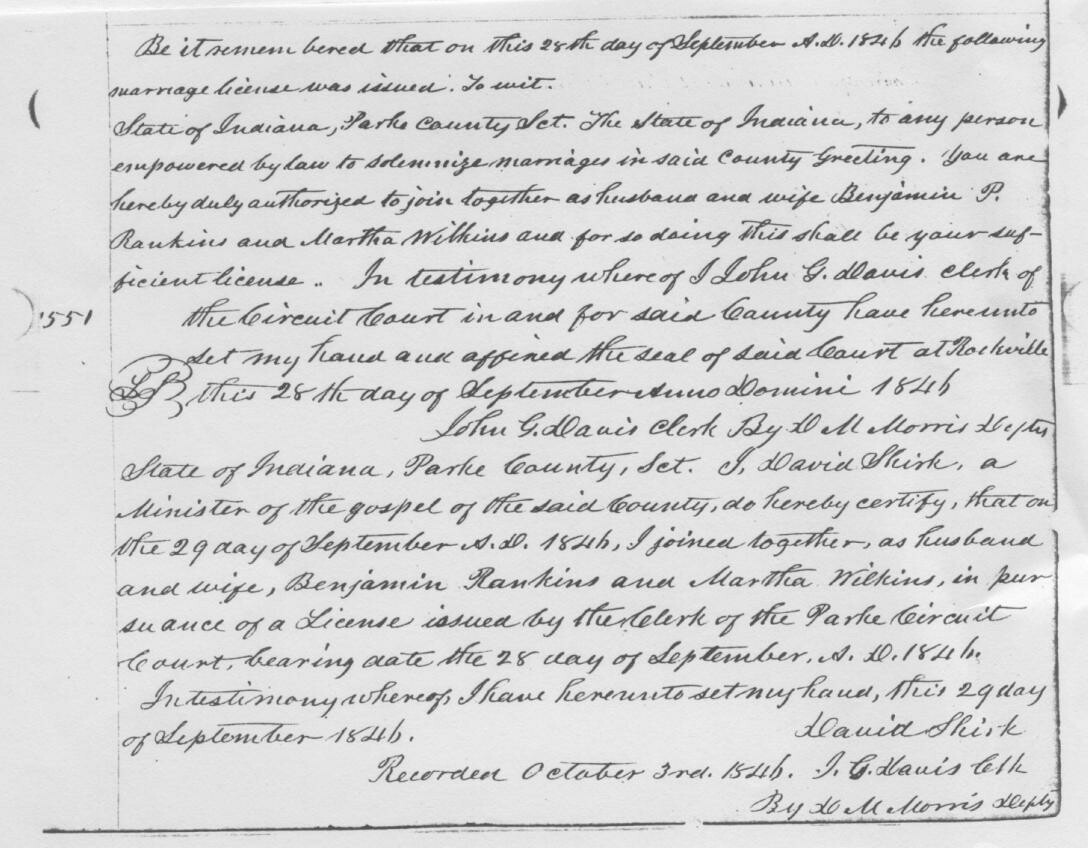 Be it remembered that on this 28th day of September A.D. 1846 the following
marriage license was issued. To wit.
State of Indiana, Parke County Sct. The State of Indiana, to any person
empowered by law to solemnize marriages in said County Greeting. You are
hereby duly authorized to join together as husband and wife Benjamin P.
Rankins and Martha Wilkins and for so doing this shall be your suf-
ficient license.. In testimony whereof I John G. Davis clerk of
the Circuit Court in and for said County have hereunto
551
set my hand and affixed the seal of said Court at Rockville
LS this 28th day of September Anno Domini 1846
John G. Davis Clerk By D M Morris Depty
State of Indiana, Parke County, Sct. I, David Shirk, a
Minister of the gospel of the said County, do hereby certify, that on
the 29 day of September A.D. 1846, I joined together, as husband
and wife, Benjamin Rankins and Martha Wilkins, in pur
suance of a License issued by the Clerk of the Parke Circuit
Court, bearing date the 28 day of September, A. D. 1846.
In testimony whereof, I have hereunto set my hand, this 29 day
of September 1846. David Shirk
Recorded October 3rd. 1846. J. G. Davis Clk
By D M Morris Depty